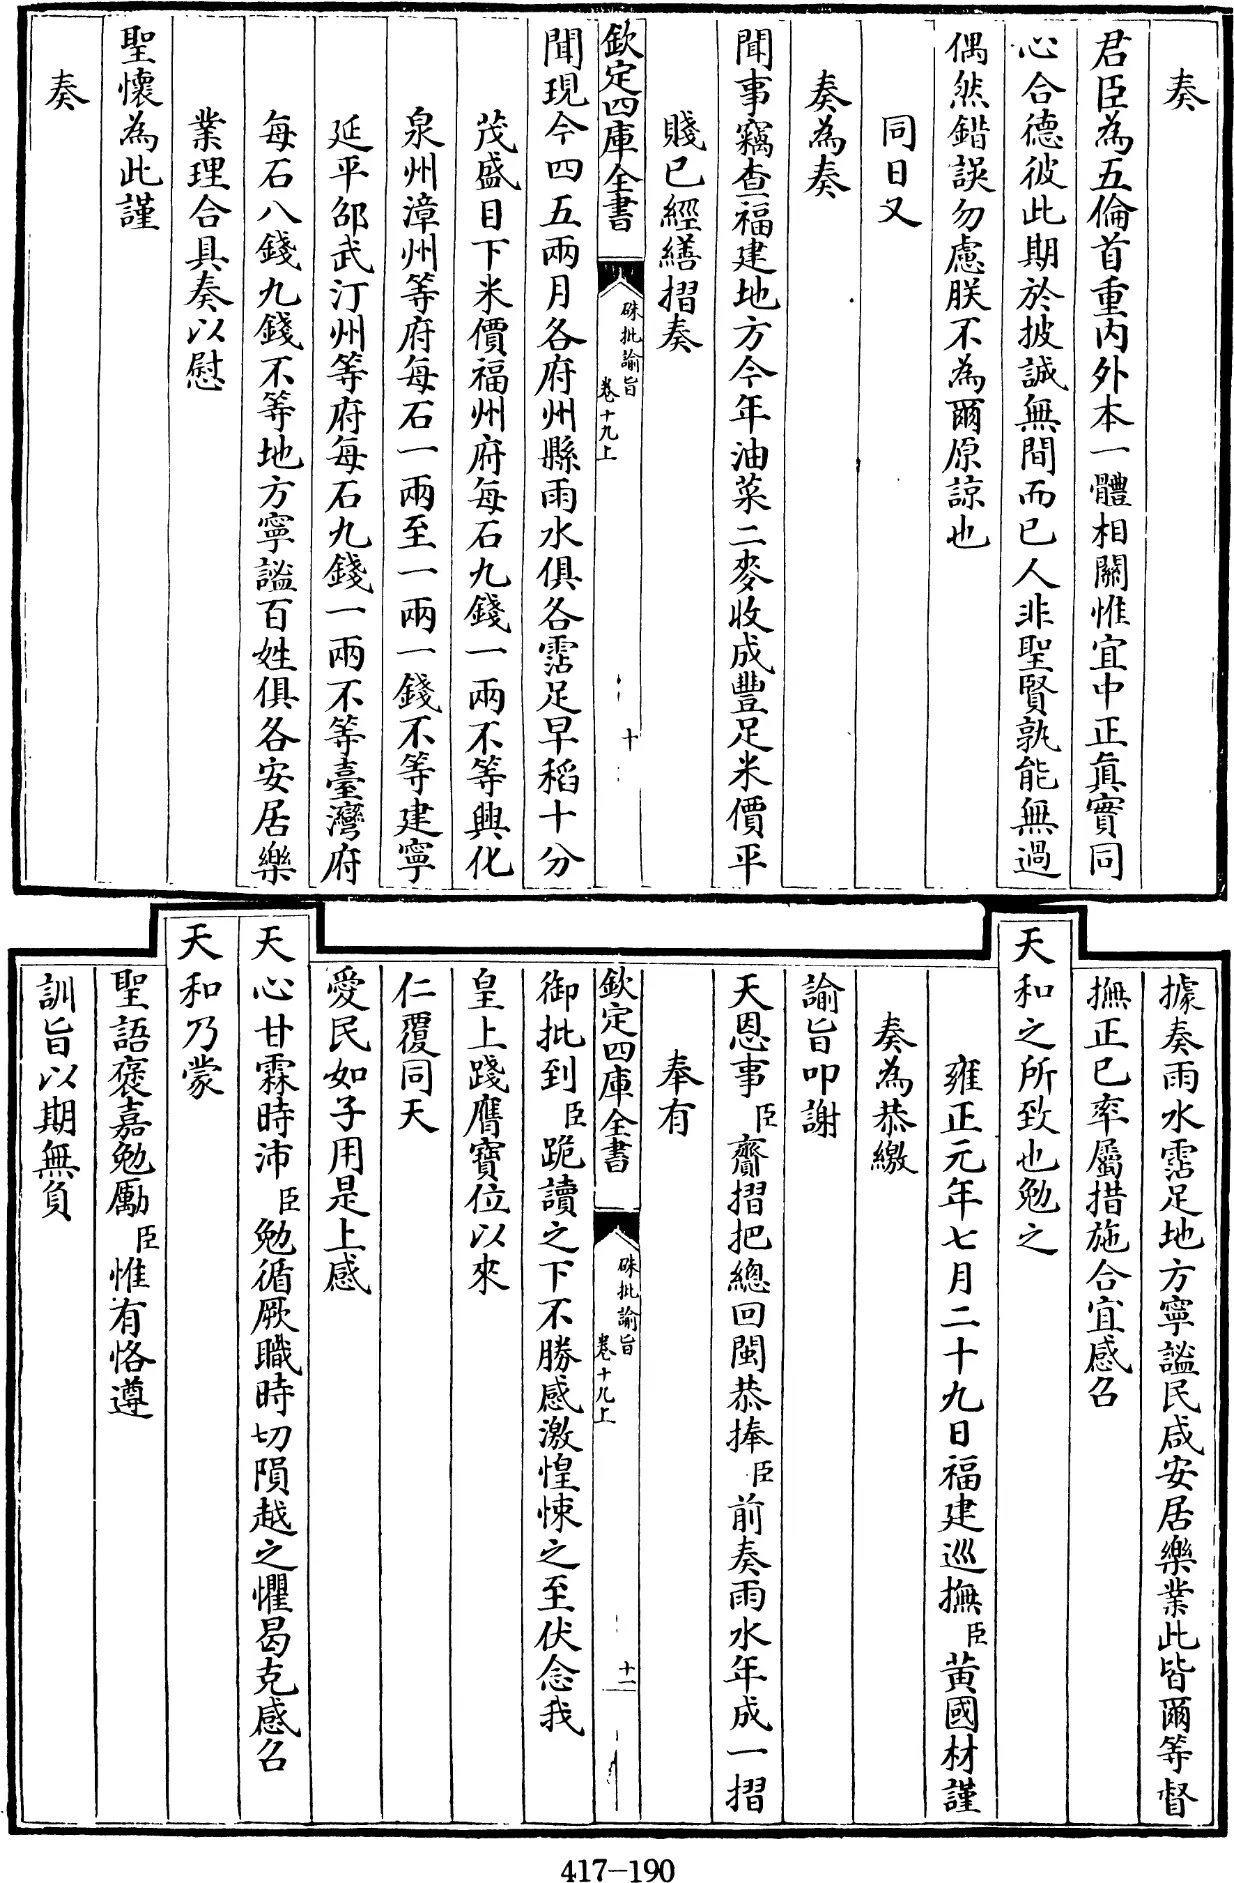 奏
君臣為五倫首重内外本一體相關惟宜中正眞實同
心合德彼此期於披誠無間而已人非聖賢孰能無過
偶然錯誤勿慮朕不為爾原諒也
同日又
奏為奏
聞事竊查福建地方今年油菜二麥收成豐足米價平
賤已經繕摺奏
欽定四庫全書
硃批諭旨
卷十九上
十
聞現今四五兩月各府州縣雨水俱各霑足早稻十分
茂盛目下米價福州府每石九錢一兩不等興化
泉州漳州等府每石一兩至一兩一錢不等建寧
延平邵武汀州等府每石九錢一兩不等臺灣府
每石八錢九錢不等地方寧謐百姓俱各安居樂
業理合具奏以慰
聖懷為此謹
奏
據奏雨水霑足地方寧謐民咸安居樂業此皆爾等督
撫正己率屬措施合宜感召
天和之所致也勉之
雍正元年七月二十九日福建巡撫臣黃國材謹
奏為恭繳
諭旨叩謝
天恩事臣齎摺把總回閩恭捧臣前奏雨水年成一摺
奉有
欽定四庫全書
硃批諭旨
卷十九上
十一
御批到臣跪讀之下不勝感激惶悚之至伏念我
皇上踐膺寶位以來
仁覆同天
愛民如子用是上感
天心甘霖時沛臣勉循厥職時切隕越之懼曷克感召
天和乃蒙
聖語褒嘉勉勵臣惟有恪遵
訓旨以期無負
417-190